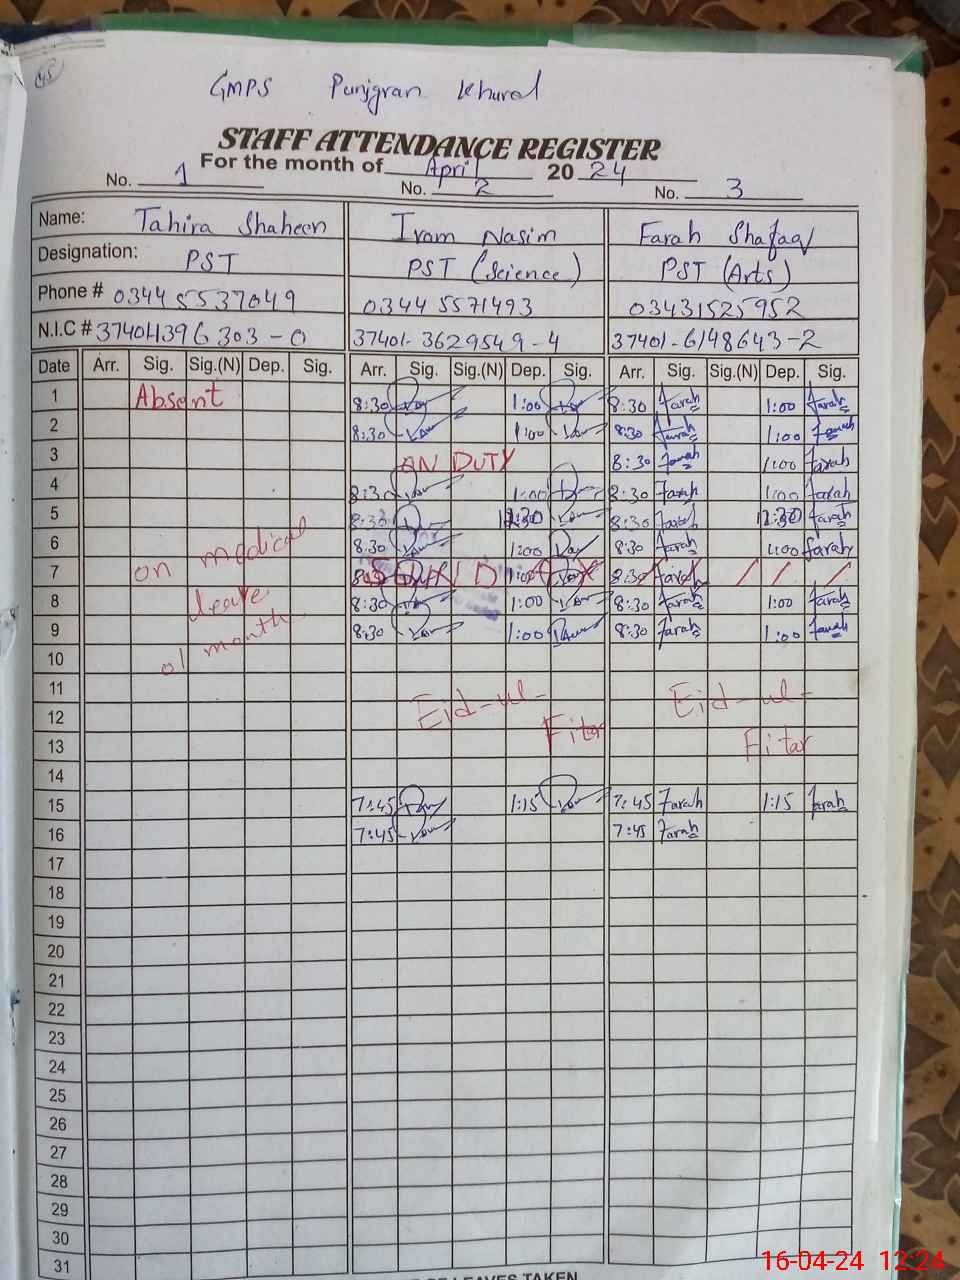 45
GMPS Punjgran Khural
STAFF ATTENDANCE REGISTER
For the month of April 20 24
No. 1 No. 2 No. 3
Name: Tahira Shaheen Iram Nasim Farah Shafaq
Designation: PST PST (Science) PST (Arts)
Phone # 0344 5537049 0344 5571493 03431525952
N.I.C # 374041396303-0 37401-3629549-4 37401-6148643-2
Date Arr. Sig. Sig.(N) Dep. Sig. Arr. Sig. Sig.(N) Dep. Sig. Arr. Sig. Sig.(N) Dep. Sig.
1 Absent 8:30 1:00 8:30 Farah 1:00 Farah
2 8:30 1:00 8:30 Farah 1:00 Farah
3 ON DUTY 8:30 Farah 1:00 Farah
4 8:30 1:00 8:30 Farah 1:00 Farah
5 8:30 12:30 8:30 Farah 12:30 Farah
6 on medical 8:30 1:00 8:30 Farah 1:00 Farah
7 8:30 SUNDAY 1:00 8:30 Farah
8 leave 8:30 1:00 8:30 Farah 1:00 Farah
9 01 month 8:30 1:00 8:30 Farah 1:00 Farah
10
11 Eid-ul- Eid-ul-
12 Fitar
13 Fitar
14
15 7:45 1:15 7:45 Farah 1:15 Farah
16 7:45 7:45 Farah
17
18
19
20
21
22
23
24
25
26
27
28
29
30
31
LEAVES TAKEN
16-04-24 12:24